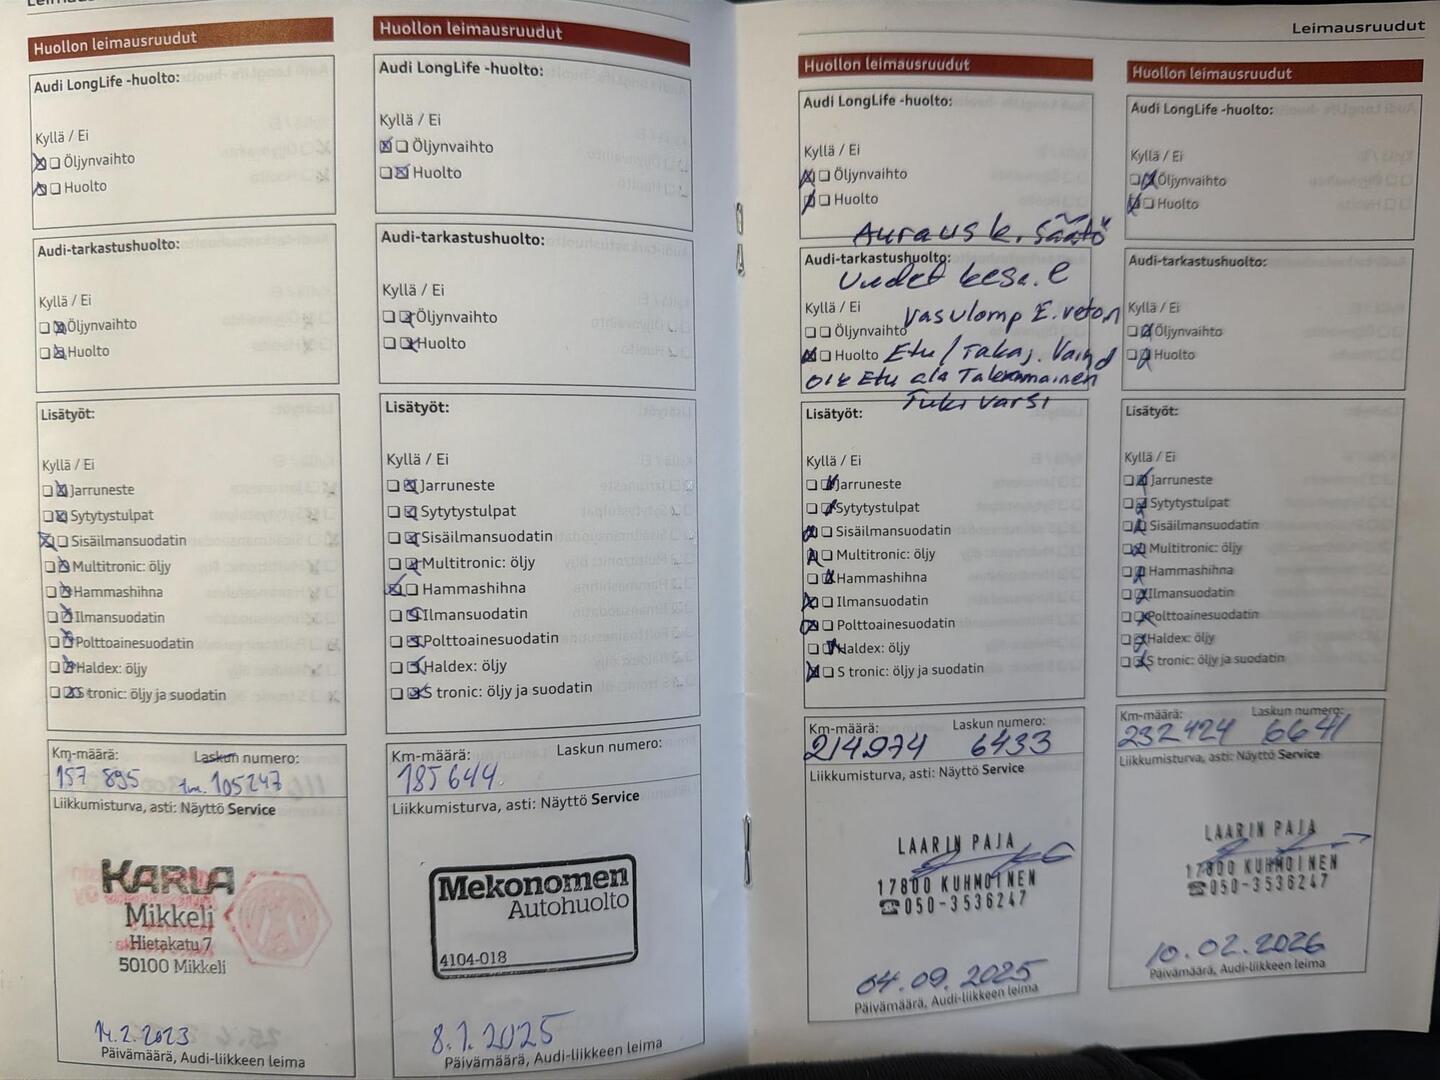 Huollon leimausruudut
Audi LongLife -huolto:
Kyllä / Ei
Öljynvaihto
Huolto
Audi-tarkastushuolto:
Kyllä / Ei
Öljynvaihto
Huolto
Lisätyöt:
Kyllä / Ei
Jarruneste
Sytytystulpat
Sisäilmansuodatin
Multitronic: öljy
Hammashihna
Ilmansuodatin
Polttoainesuodatin
Haldex: öljy
S tronic: öljy ja suodatin
Km-määrä: Laskun numero:
157 895 105247
Liikkumisturva, asti: Näyttö Service
KARLA
Mikkeli
Hietakatu 7
50100 Mikkeli
14.2.2023
Päivämäärä, Audi-liikkeen leima
Huollon leimausruudut
Audi LongLife -huolto:
Kyllä / Ei
Öljynvaihto
Huolto
Audi-tarkastushuolto:
Kyllä / Ei
Öljynvaihto
Huolto
Lisätyöt:
Kyllä / Ei
Jarruneste
Sytytystulpat
Sisäilmansuodatin
Multitronic: öljy
Hammashihna
Ilmansuodatin
Polttoainesuodatin
Haldex: öljy
S tronic: öljy ja suodatin
Km-määrä: Laskun numero:
185644
Liikkumisturva, asti: Näyttö Service
Mekonomen
Autohuolto
4104-018
8.1.2025
Päivämäärä, Audi-liikkeen leima
Leimausruudut
Huollon leimausruudut
Audi LongLife -huolto:
Kyllä / Ei
Öljynvaihto
Huolto
Auraus k. Säätö
Audi-tarkastushuolto:
Uudet kesä.
Kyllä / Ei
Vasulomp E. veton
Öljynvaihto
Huolto Etu / Takaj. Vaihd
Oik Etu ala Takimmainen
Tukivarsi
Lisätyöt:
Kyllä / Ei
Jarruneste
Sytytystulpat
Sisäilmansuodatin
Multitronic: öljy
Hammashihna
Ilmansuodatin
Polttoainesuodatin
Haldex: öljy
S tronic: öljy ja suodatin
Km-määrä: Laskun numero:
214974 6433
Liikkumisturva, asti: Näyttö Service
LAARIN PAJA
17800 KUHMOINEN
☎050-3536247
04.09.2025
Päivämäärä, Audi-liikkeen leima
Huollon leimausruudut
Audi LongLife -huolto:
Kyllä / Ei
Öljynvaihto
Huolto
Audi-tarkastushuolto:
Kyllä / Ei
Öljynvaihto
Huolto
Lisätyöt:
Kyllä / Ei
Jarruneste
Sytytystulpat
Sisäilmansuodatin
Multitronic: öljy
Hammashihna
Ilmansuodatin
Polttoainesuodatin
Haldex: öljy
S tronic: öljy ja suodatin
Km-määrä: Laskun numero:
232424 6641
Liikkumisturva, asti: Näyttö Service
LAARIN PAJA
17800 KUHMOINEN
☎050-3536247
10.02.2026
Päivämäärä, Audi-liikkeen leima